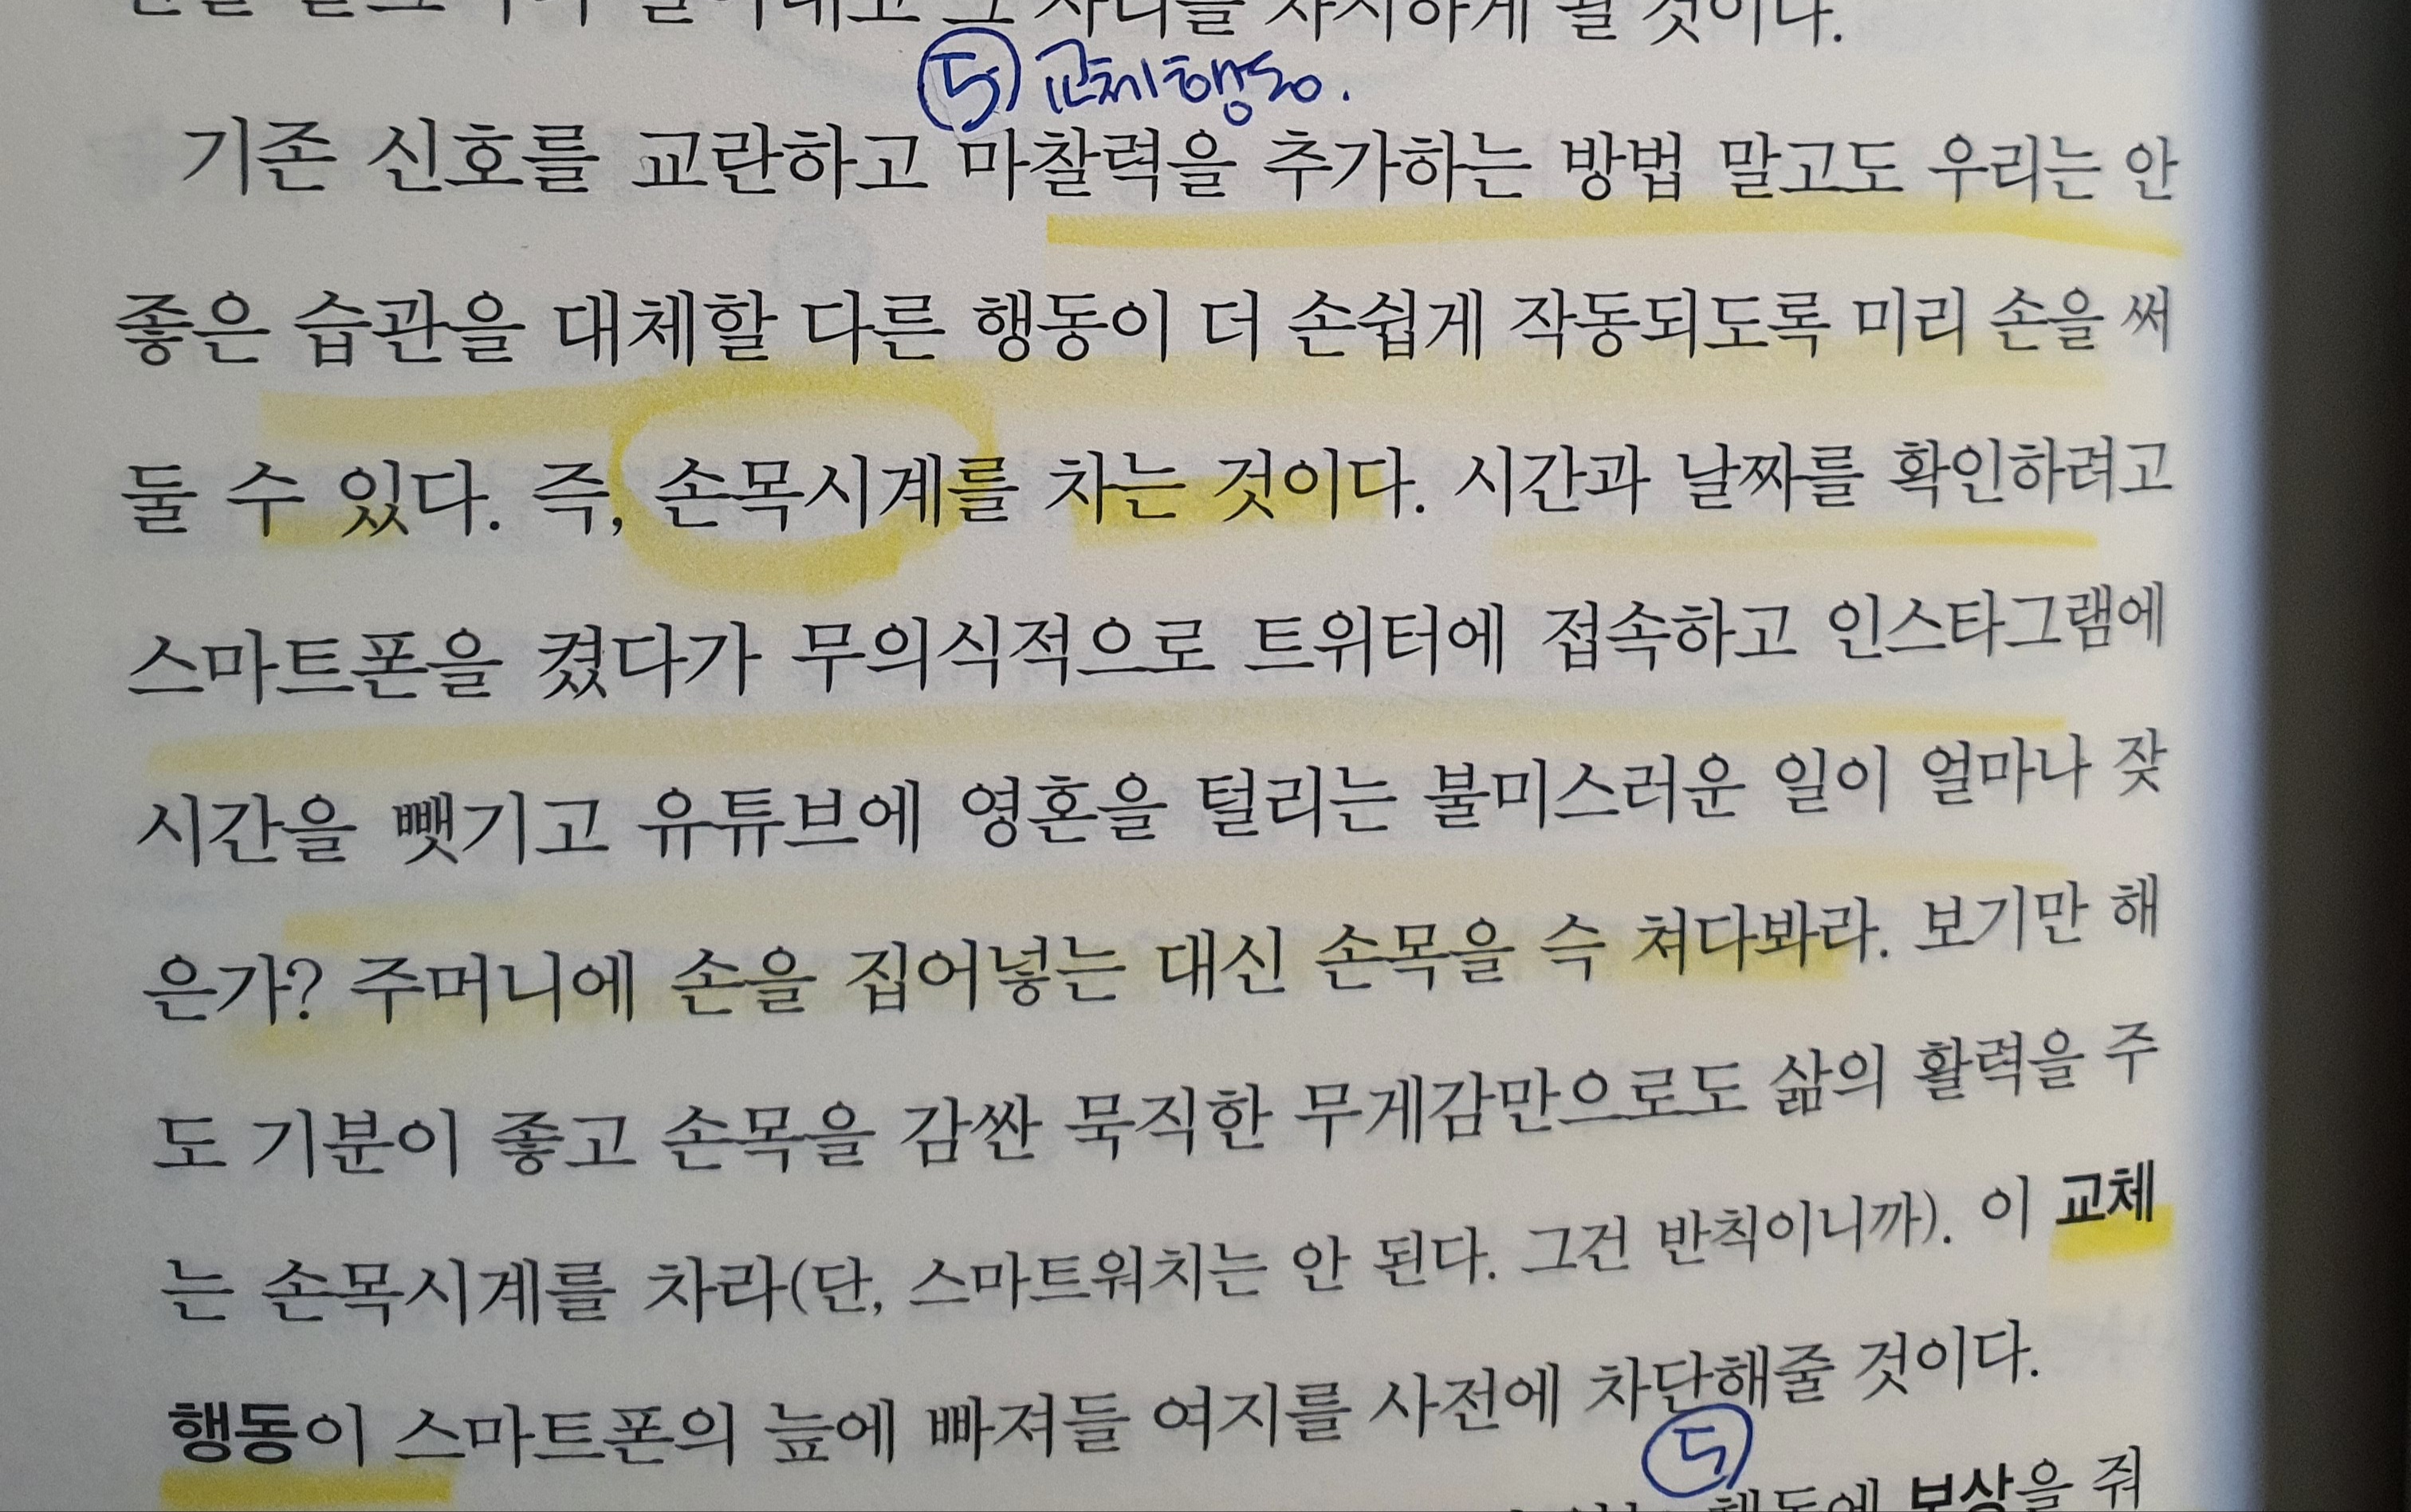 자리를 차지하게 될 것이다.
⑤ 교체행동.
기존 신호를 교란하고 마찰력을 추가하는 방법 말고도 우리는 안
좋은 습관을 대체할 다른 행동이 더 손쉽게 작동되도록 미리 손을 써
둘 수 있다. 즉, 손목시계를 차는 것이다. 시간과 날짜를 확인하려고
스마트폰을 켰다가 무의식적으로 트위터에 접속하고 인스타그램에
시간을 뺏기고 유튜브에 영혼을 털리는 불미스러운 일이 얼마나 잦
은가? 주머니에 손을 집어넣는 대신 손목을 슥 쳐다봐라. 보기만 해
도 기분이 좋고 손목을 감싼 묵직한 무게감만으로도 삶의 활력을 주
는 손목시계를 차라(단, 스마트워치는 안 된다. 그건 반칙이니까). 이 교체
행동이 스마트폰의 늪에 빠져들 여지를 사전에 차단해줄 것이다.
⑤
행동에 보상을 줘